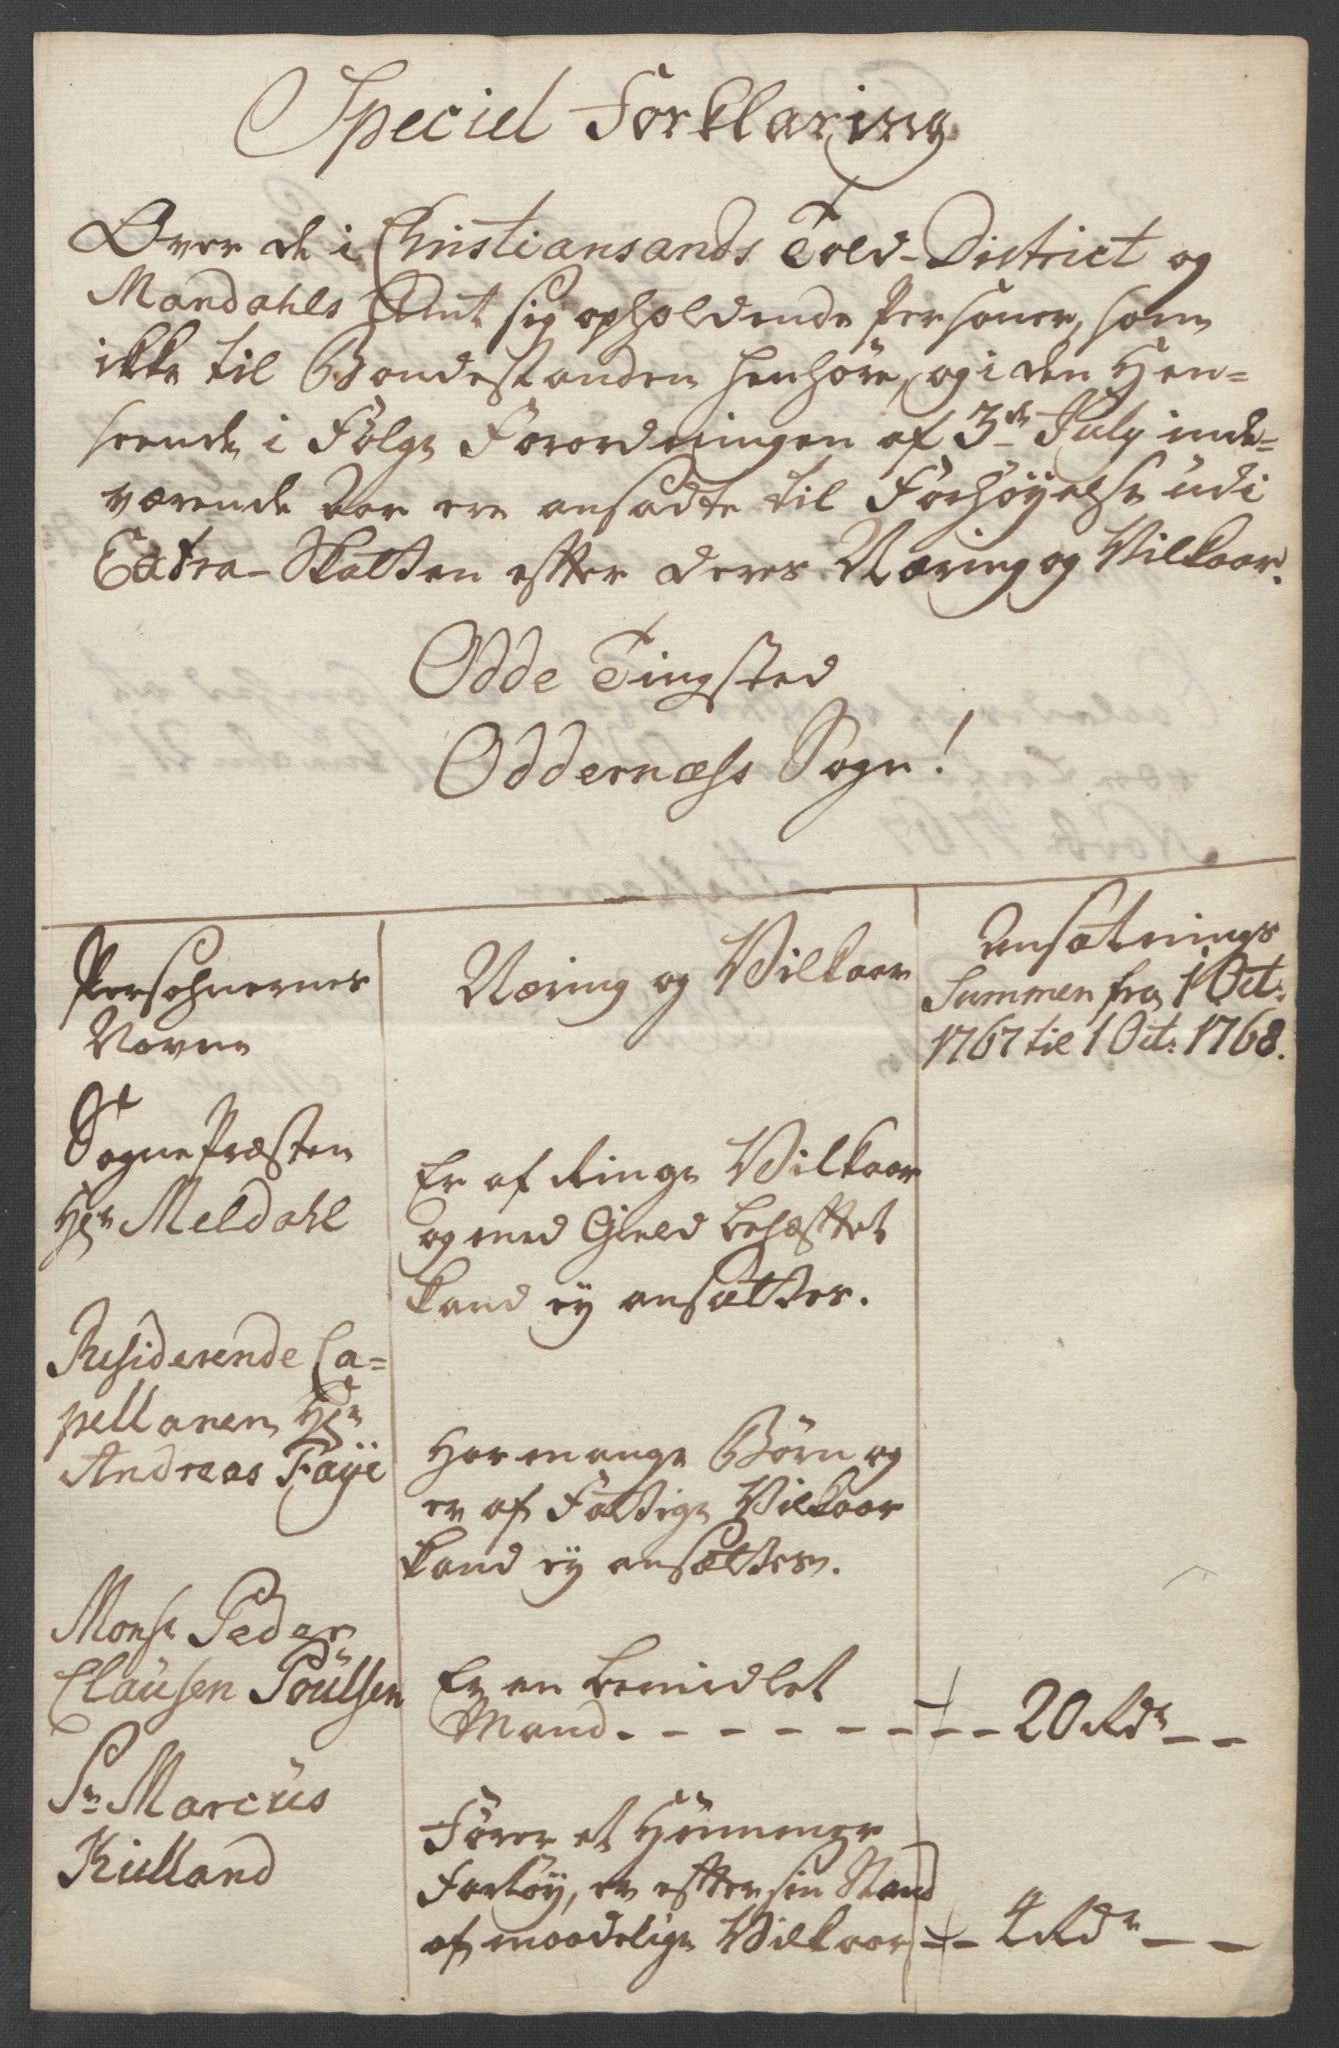 Speciel Forklaring
Over de i Christiansands Told-District og
Mandahls Amt sig opholdende Personer, som
ikke til Bondestanden henhöre, og i den Hen=
seende i Fölge Forordningen af 3de July inde=
værende Aar ere ansadte til Forhöyelse udi
Extra-Skatten efter deres Næring og Vilkaar.
Odde Tingsted
Oddernæss Sogn!
Persohnernes
Navne
Næring og Vilkaar
Ansætnings
Summen fra 1 Oct:
1767 til 1 Oct: 1768.
Sogne Præsten
Hr Meldahl
Er af Ringe Vilkaar
og med Gield behæfftet
kand ey ansættes.
Residerende Ca=
pellanen Hr
Andreas Faÿe
Har mange Börn og
er af Fattige Vilkaar
kand ey ansættes.
Monsr Peder
Clausen Poulsen
Er en bemidlet
Mand - - - - - - - - 20 Rdr - -
Sr Marcus
Kielland
Förer et Hummer
Fartöy, er efter sin Stand
af maadelige Vilkaar - - 4 Rdr - -